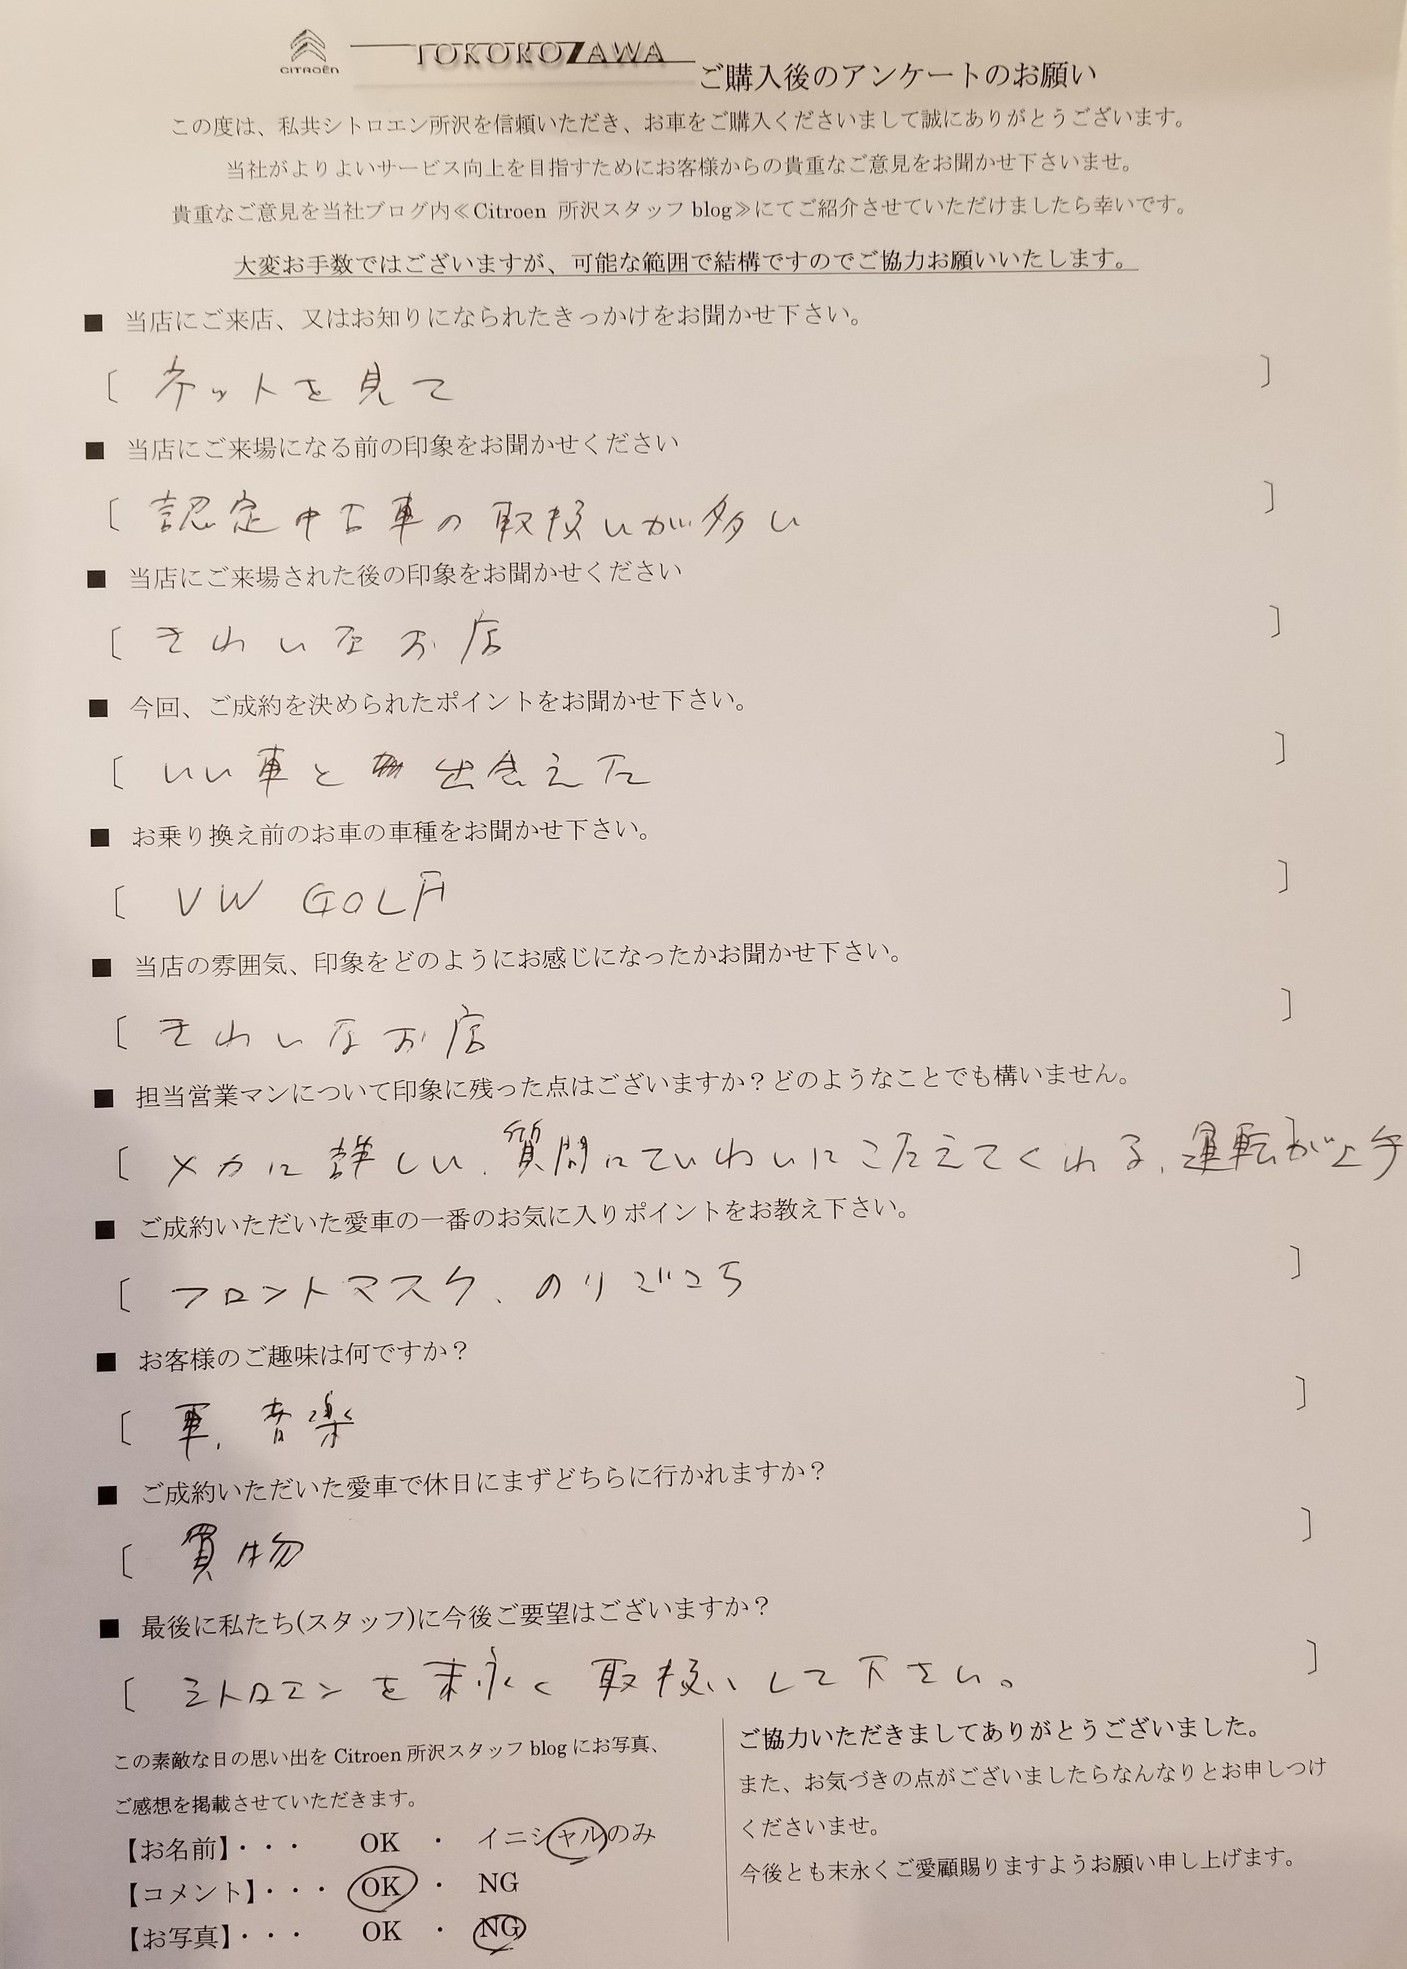 CITROËN
TOKOROZAWA ご購入後のアンケートのお願い
この度は、私共シトロエン所沢を信頼いただき、お車をご購入くださいまして誠にありがとうございます。
当社がよりよいサービス向上を目指すためにお客様からの貴重なご意見をお聞かせ下さいませ。
貴重なご意見を当社ブログ内≪Citroen 所沢スタッフ blog≫にてご紹介させていただけましたら幸いです。
大変お手数ではございますが、可能な範囲で結構ですのでご協力お願いいたします。
■ 当店にご来店、又はお知りになられたきっかけをお聞かせ下さい。
〔 ネットを見て 〕
■ 当店にご来場になる前の印象をお聞かせください
〔 認定中古車の取扱いが多い 〕
■ 当店にご来場された後の印象をお聞かせください
〔 きれいなお店 〕
■ 今回、ご成約を決められたポイントをお聞かせ下さい。
〔 いい車と出会えた 〕
■ お乗り換え前のお車の車種をお聞かせ下さい。
〔 VW GOLF 〕
■ 当店の雰囲気、印象をどのようにお感じになったかお聞かせ下さい。
〔 きれいなお店 〕
■ 担当営業マンについて印象に残った点はございますか？どのようなことでも構いません。
〔 メカに詳しい、質問にていねいにこたえてくれる、運転が上手 〕
■ ご成約いただいた愛車の一番のお気に入りポイントをお教え下さい。
〔 フロントマスク、のりごこち 〕
■ お客様のご趣味は何ですか？
〔 車、音楽 〕
■ ご成約いただいた愛車で休日にまずどちらに行かれますか？
〔 買物 〕
■ 最後に私たち(スタッフ)に今後ご要望はございますか？
〔 シトロエンを末永く取扱いして下さい。 〕
この素敵な日の思い出を Citroen 所沢スタッフ blog にお写真、
ご感想を掲載させていただきます。
【お名前】・・・ OK ・ イニシャルのみ
【コメント】・・・ OK ・ NG
【お写真】・・・ OK ・ NG
ご協力いただきましてありがとうございました。
また、お気づきの点がございましたらなんなりとお申しつけ
くださいませ。
今後とも末永くご愛顧賜りますようお願い申し上げます。